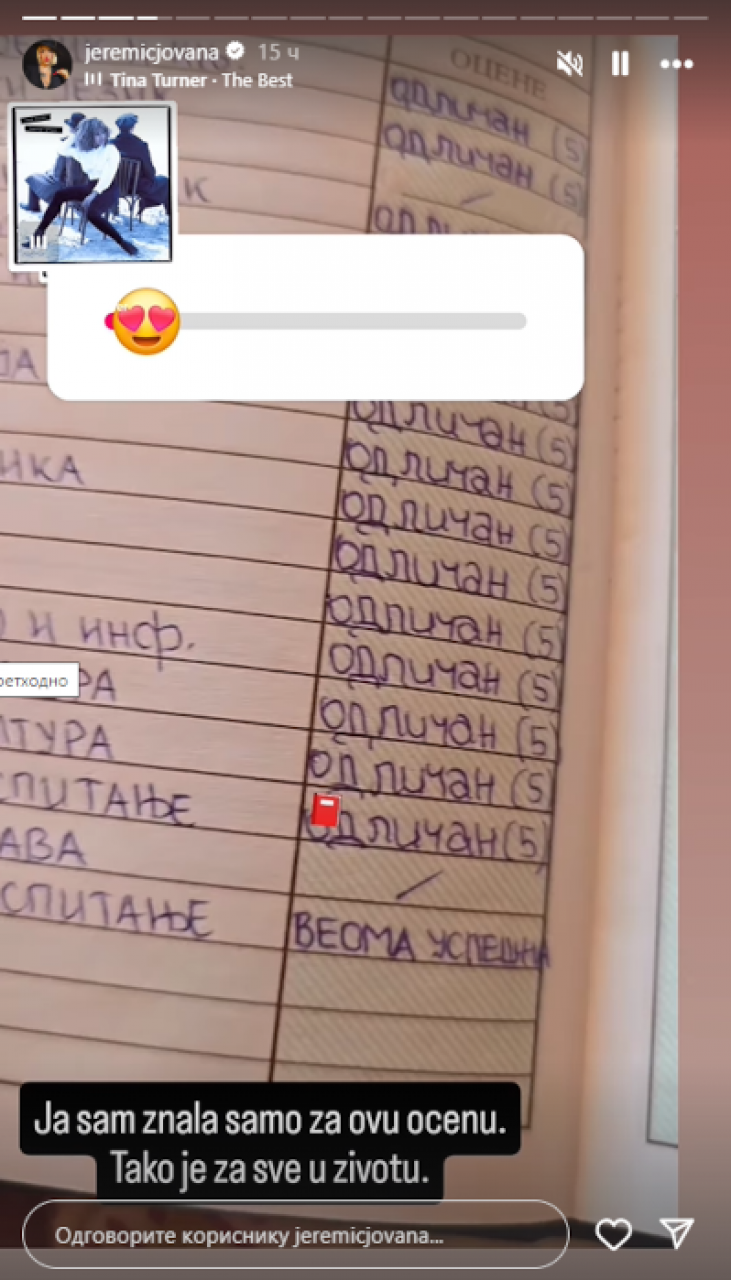 jeremicjovana 15 ч
Tina Turner · The Best
ОЦЕНЕ
одличан (5)
одличан (5)
К
ЈА
одличан (5)
ИКА одличан (5)
одличан (5)
одличан (5)
одличан (5)
и инф. одличан (5)
одличан (5)
одличан (5)
одличан (5)
ВЕОМА УСПЕШНА
Ja sam znala samo za ovu ocenu.
Tako je za sve u zivotu.
Одговорите кориснику jeremicjovana...